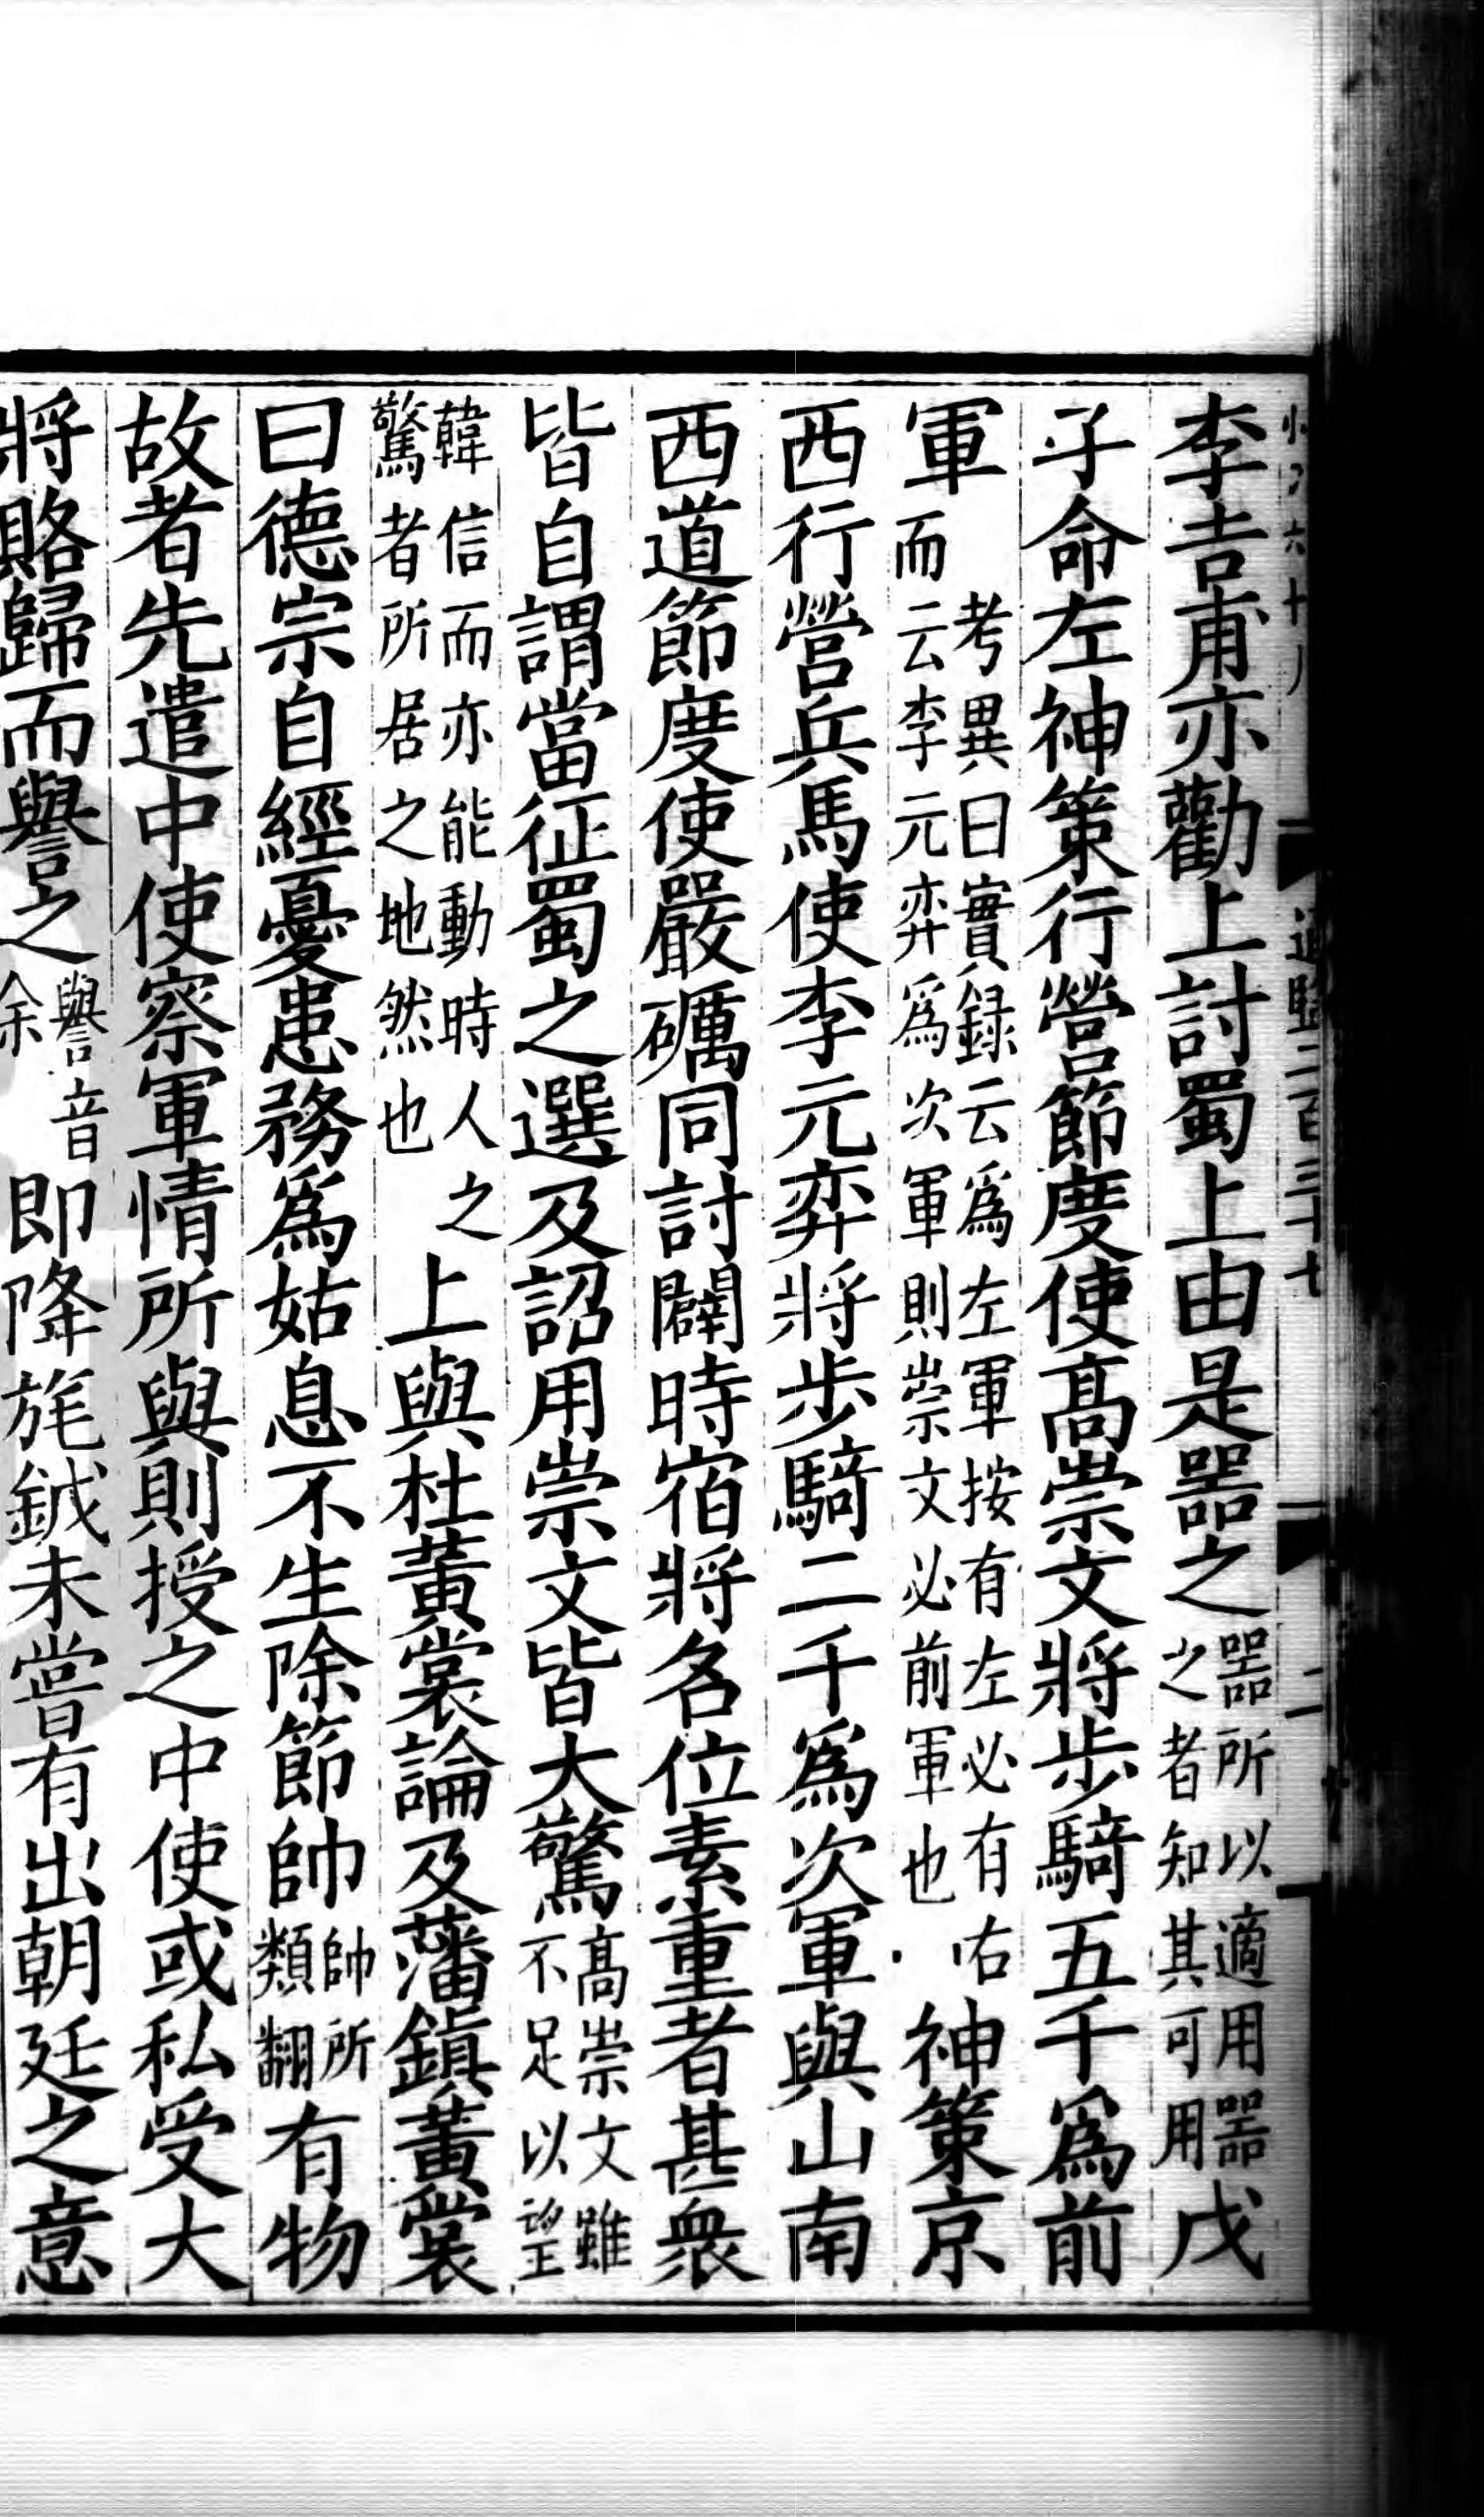 李吉甫亦勸上討蜀上由是器之器所以適用器之者知其可用戊
子命左神策行營節度使高崇文將步騎五千爲前
軍考異曰實録云爲左軍按有左必有右而云李元弈爲次軍則崇文必前軍也神策京
西行營兵馬使李元弈將步騎二千爲次軍與山南
西道節度使嚴礪同討闢時宿將名位素重者甚衆
皆自謂當征蜀之選及詔用崇文皆大驚高崇文雖不足以望
韓信而亦能動時人之驚者所居之地然也上與杜黃裳論及藩鎮黃裳
曰德宗自經憂患務爲姑息不生除節帥帥所類翻有物
故者先遣中使察軍情所與則授之中使或私受大
將賂歸而譽之譽音余即降旄鉞未嘗有出朝廷之意
通鑑二百三十七
二